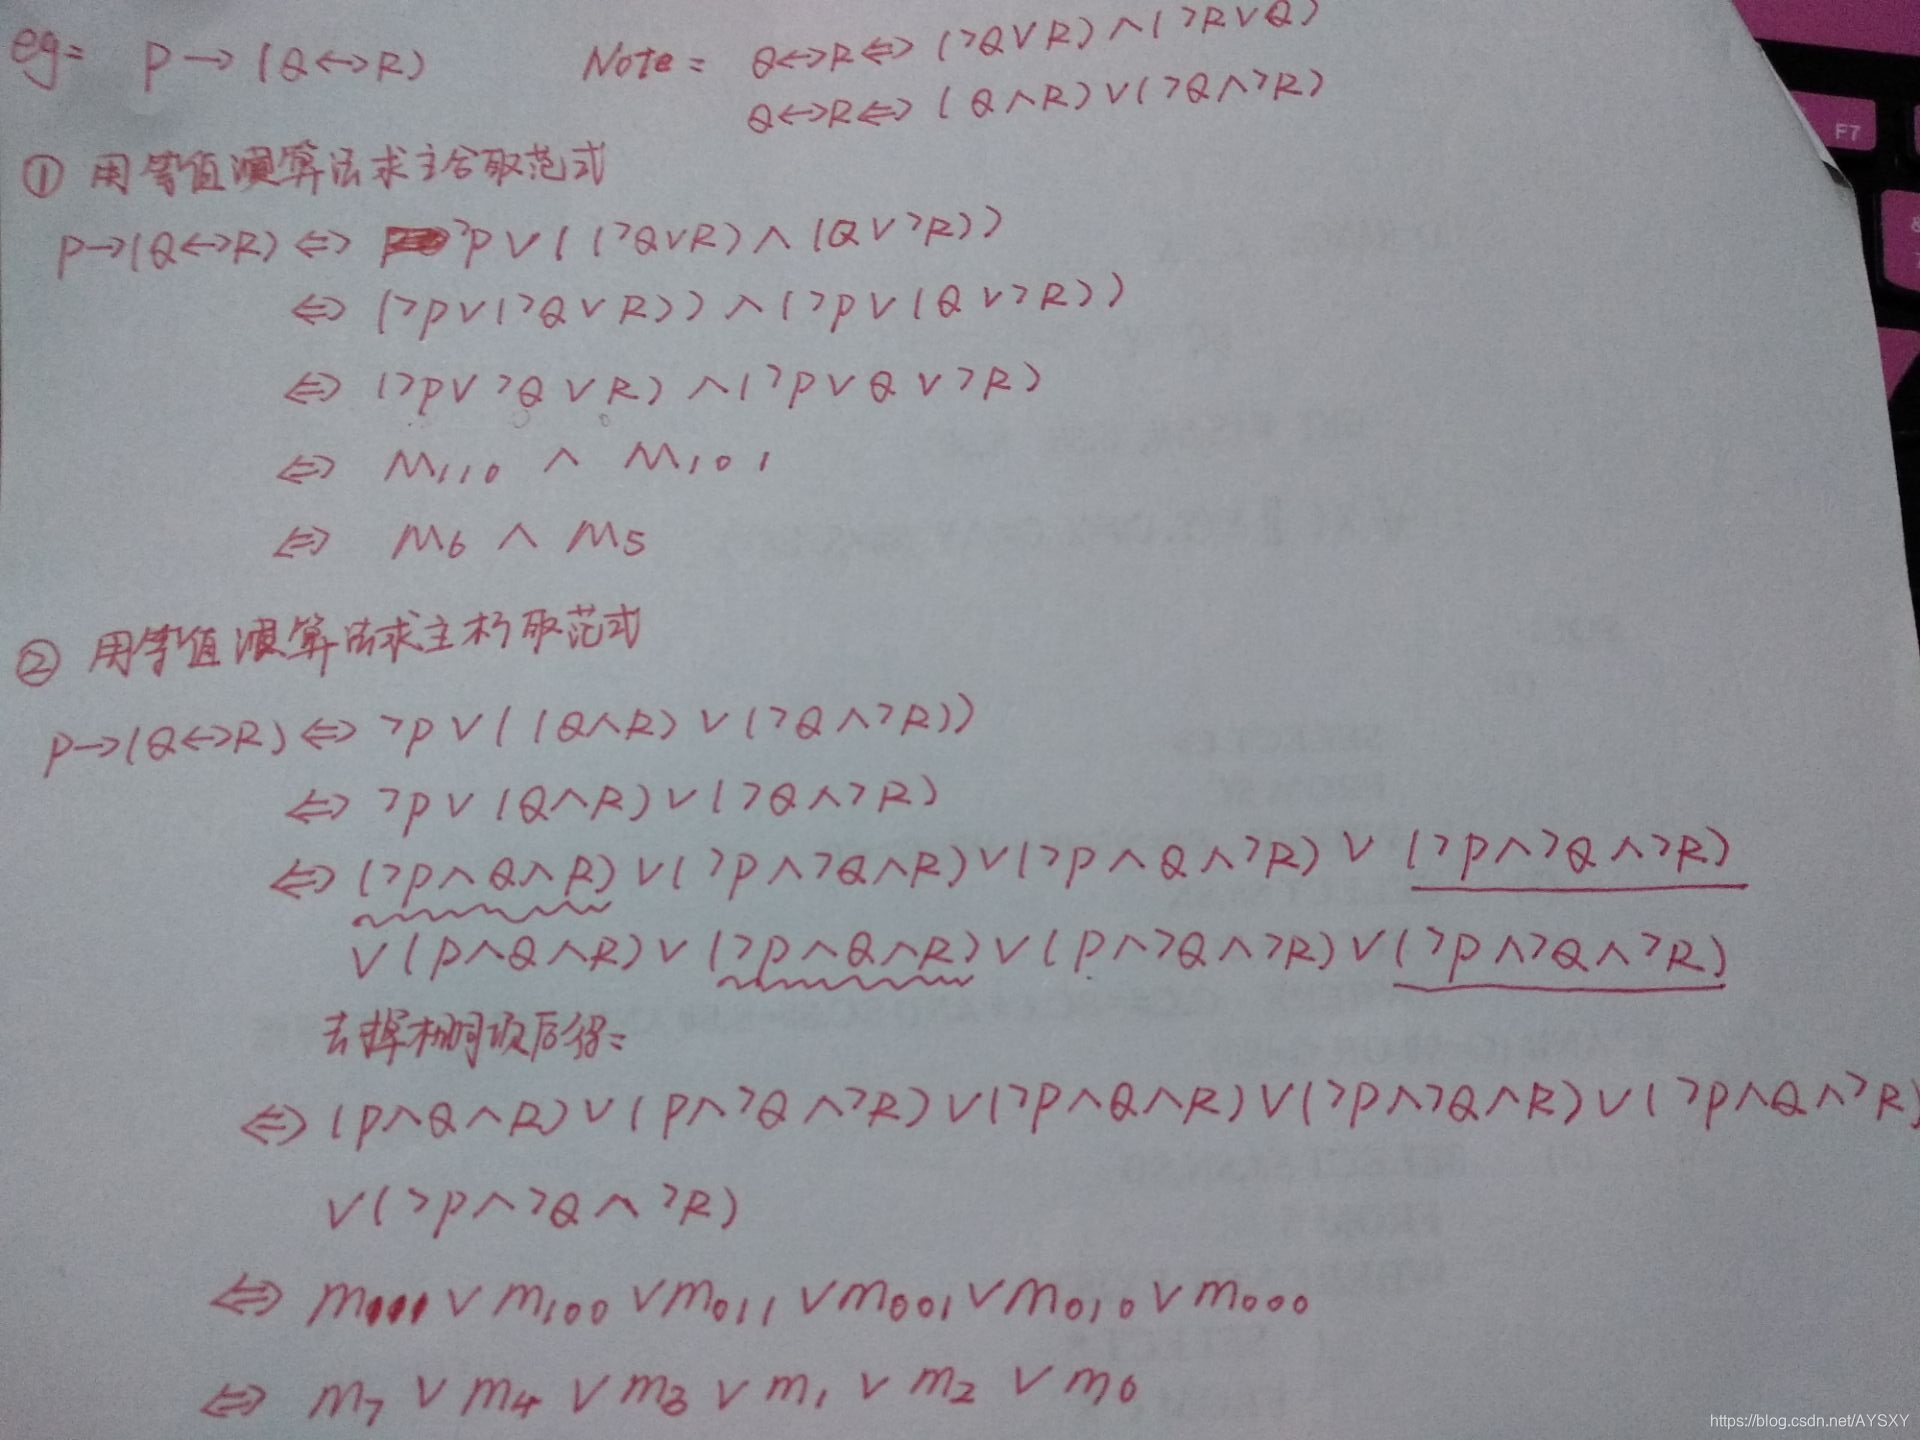 eg: P→(Q↔R) Note: Q↔R⇔(¬Q∨R)∧(¬R∨Q)
Q↔R⇔(Q∧R)∨(¬Q∧¬R)
① 用等值演算法求主合取范式
P→(Q↔R)⇔ ¬P∨((¬Q∨R)∧(Q∨¬R))
⇔ (¬P∨(¬Q∨R))∧(¬P∨(Q∨¬R))
⇔ (¬P∨¬Q∨R)∧(¬P∨Q∨¬R)
⇔ M₁₁₀ ∧ M₁₀₁
⇔ M₆ ∧ M₅
② 用等值演算法求主析取范式
P→(Q↔R)⇔ ¬P∨((Q∧R)∨(¬Q∧¬R))
⇔ ¬P∨(Q∧R)∨(¬Q∧¬R)
⇔ (¬P∧Q∧R)∨(¬P∧¬Q∧R)∨(¬P∧Q∧¬R)∨(¬P∧¬Q∧¬R)
∨(P∧Q∧R)∨(¬P∧Q∧R)∨(P∧¬Q∧¬R)∨(¬P∧¬Q∧¬R)
去掉相同项后得:
⇔ (P∧Q∧R)∨(P∧¬Q∧¬R)∨(¬P∧Q∧R)∨(¬P∧¬Q∧R)∨(¬P∧Q∧¬R)
∨(¬P∧¬Q∧¬R)
⇔ m₁₁₁∨m₁₀₀∨m₀₁₁∨m₀₀₁∨m₀₁₀∨m₀₀₀
⇔ m₇∨m₄∨m₃∨m₁∨m₂∨m₀
F7
https://blog.csdn.net/AYSXY